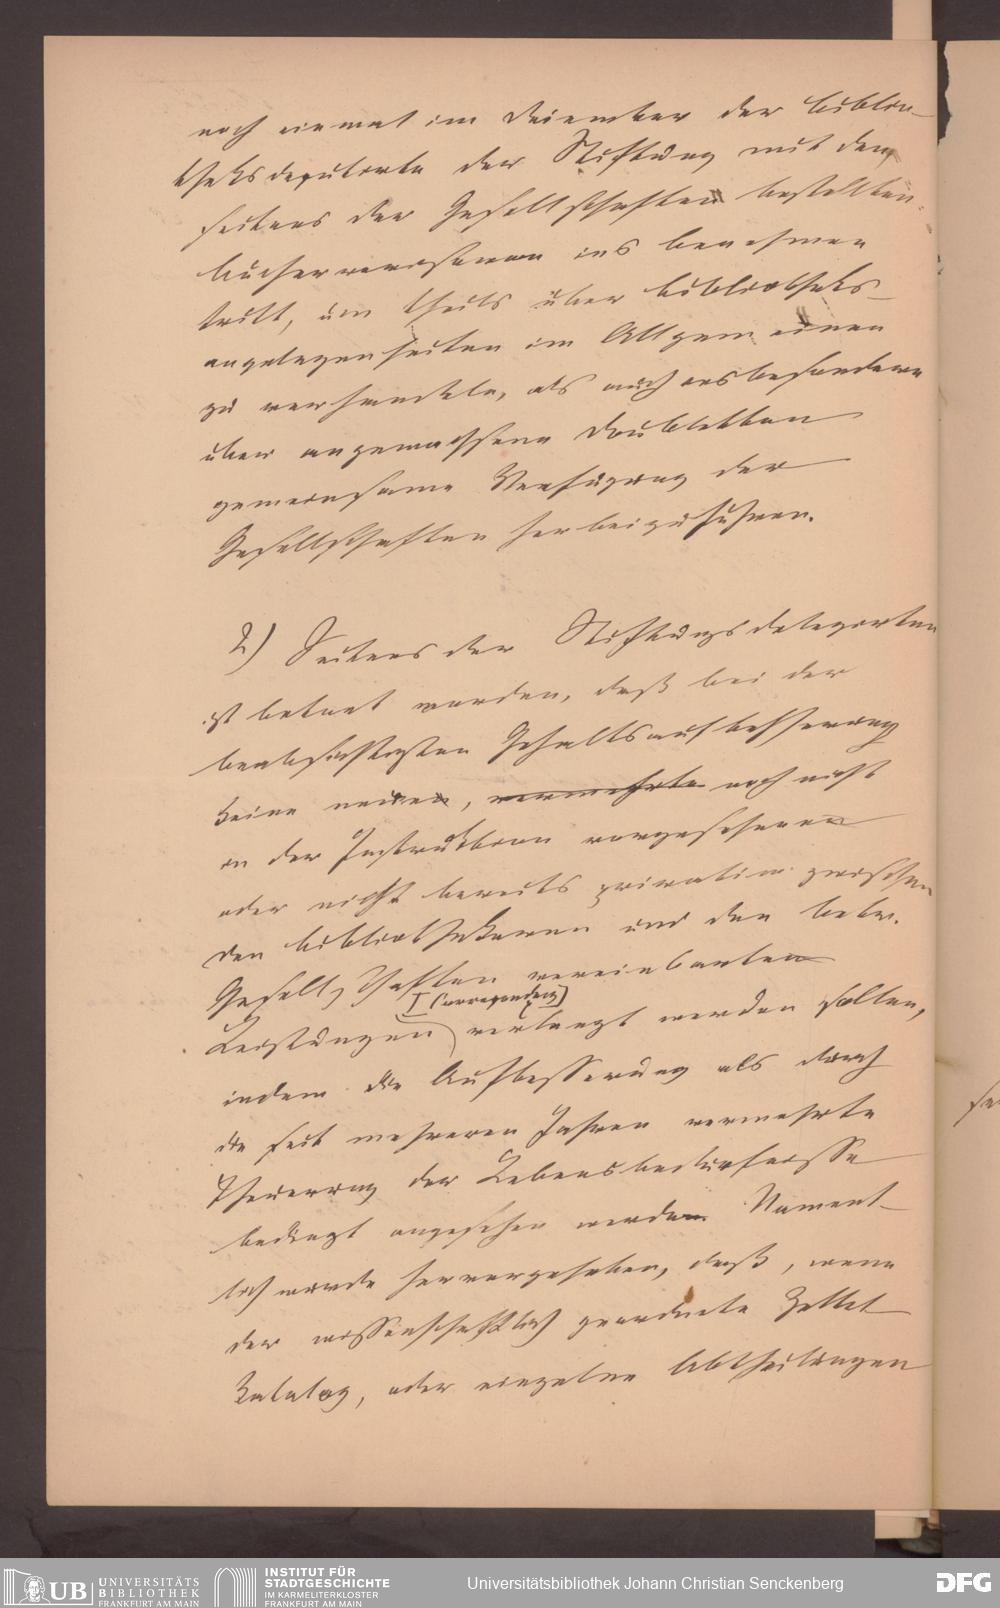 noch einmal im Dezember der Biblio-
theksdeputirte der Stiftung mit dem
seitens der Gesellschaften bestellten
Bücherrevisoren ins Benehmen
tritt, um theils über Bibliotheks-
angelegenheiten im Allgemeinen
zu verhandeln, als auch insbesondere
über angewachsene Doubletten
gemeinsame Verfügung der
Gesellschaften herbeizuführen.
2) Seitens der Stiftungsdelegirten
ist betont worden, daß bei der
beabsichtigten Gehaltsaufbesserung
keine neuen, vermehrte noch nicht
in der Instruktion vorgesehenen
oder nicht bereits privatim zwischen
den Bibliothekaren und den betr.
Gesellschaften vereinbarten
I (Correspondenz)
Leistungen verlangt werden sollen,
indem die Aufbesserung als durch
die seit mehreren Jahren vermehrte
Theuerung der Lebensbedürfnisse
bedingt angesehen werden. Nament-
lich wurde hervorgehoben, daß, wenn
der wissenschaftlich geordnete Zettel
Katalog, oder einzelne Abtheilungen
UB UNIVERSITÄTS
BIBLIOTHEK
FRANKFURT AM MAIN
INSTITUT FÜR
STADTGESCHICHTE
IM KARMELITERKLOSTER
FRANKFURT AM MAIN
Universitätsbibliothek Johann Christian Senckenberg
DFG